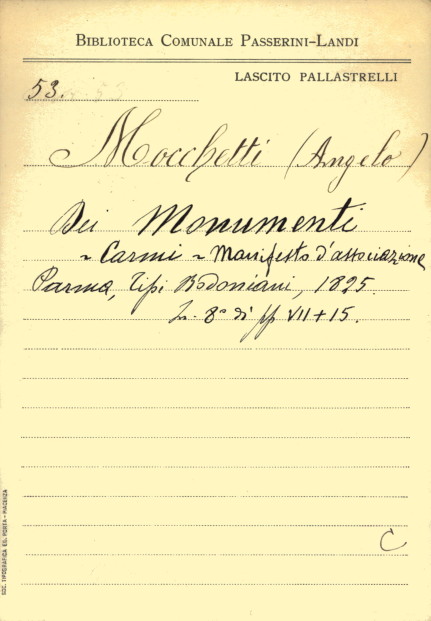 BIBLIOTECA COMUNALE PASSERINI-LANDI
LASCITO PALLASTRELLI
53.
Mocchetti (Angelo)
Dei Monumenti
~ Carmi ~ Manifesto d'associazione
Parma, Tipi Bodoniani, 1825.
In 8° di pp VII + 15.
C
SOC. TIPOGRAFICA ED. PORTA - PIACENZA